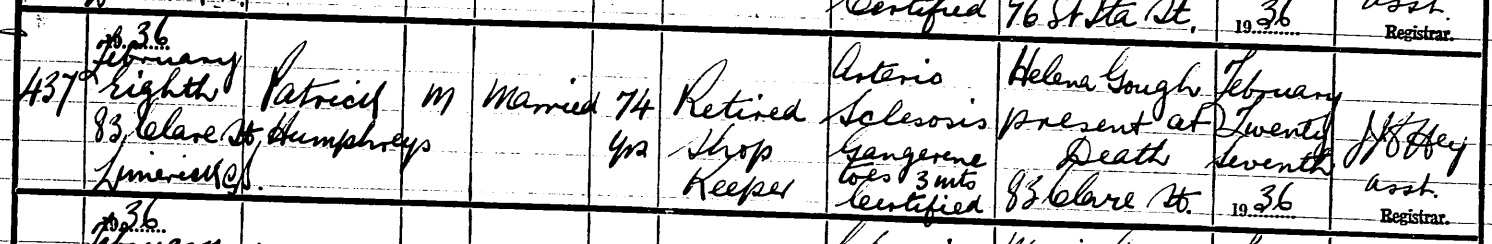 Certified
76 St Ita St.
1936
Asst.
Registrar.
437
1936
February
Eighth
83 Clare St
Limerick
Patrick
Humphreys
M
Married
74
yrs
Retired
Shop
Keeper
Arterio
Sclesosis
Gangerene
toes 3 mts
Certified
Helena Gough
present at
Death
83 Clare St.
February
Twenty
Seventh
1936
Asst.
Registrar.
1936